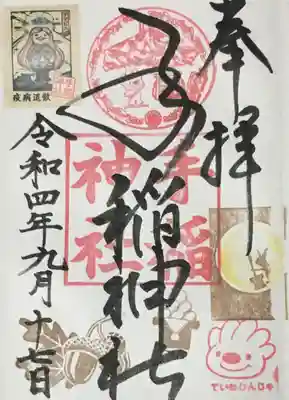 奉拝
手稲神社
手稲
神社
令和四年九月十七日
疫病退散
ていねじんじゃ